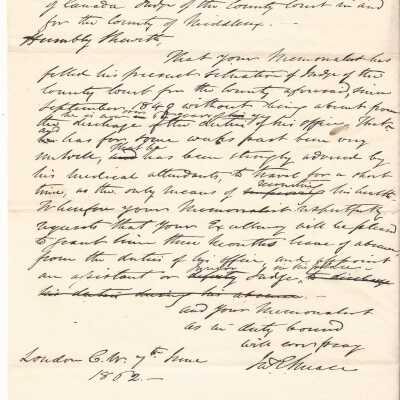 of Canada Judge of the County Court in and
for the County of Middlesex.
Humbly Sheweth,
That your Memorialist has
filled his present situation of Judge of the
County Court for the County aforesaid, since
September, 1849 without being absent from
he is now in year of his age
the discharge of the duties of his office, That
and
he has for some weeks past been very
that he
unwell, and has been strongly advised by
his medical attendants, to travel for a short
recruiting
time, as the only means of his health.
Wherefore your Memorialist respectfully
requests that Your Excellency will be pleased
to grant him three Months leave of absence,
from the duties of his office, and appoint
junior
an assistant or deputy Judge, to discharge
his duties during his absence.
and your Memorialist
as in duty bound
will ever pray
London C. W. 7th June
1862.—